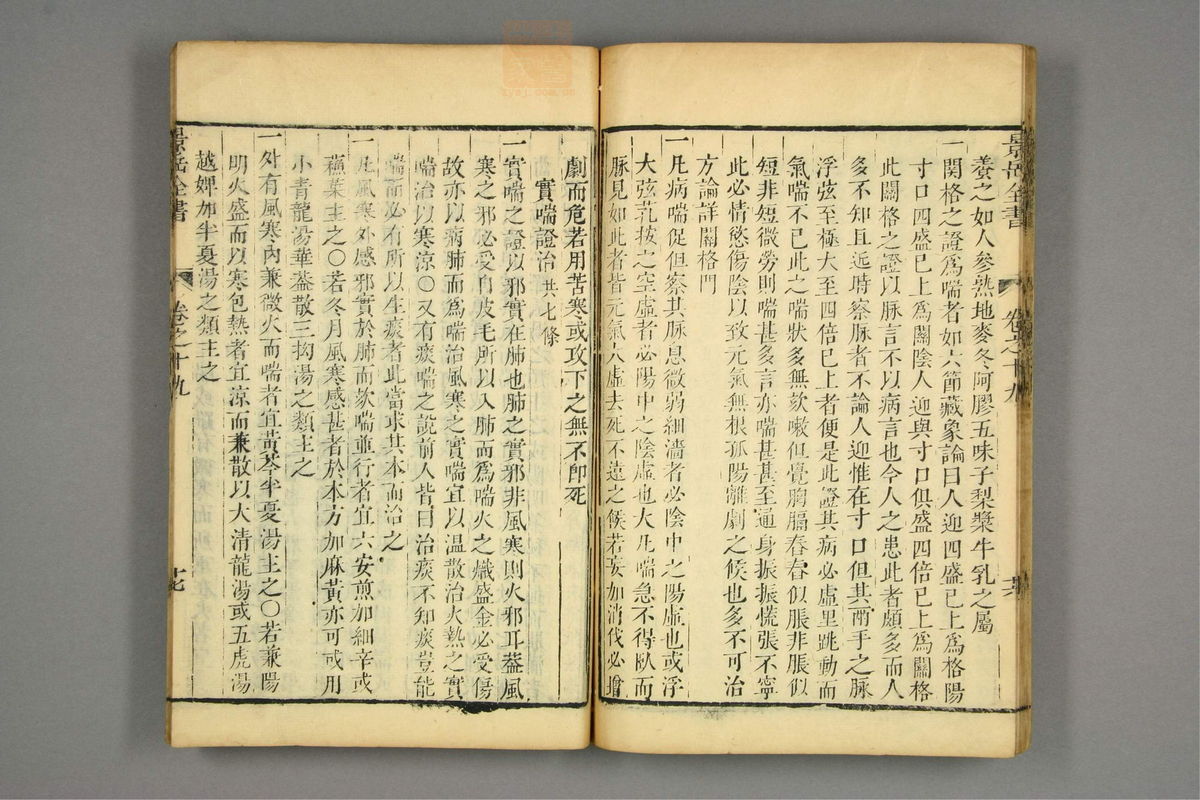 景岳全書
卷之十九
養之如人參熟地麥冬阿膠五味子梨漿牛乳之屬
一關格之證爲喘者如六節藏象論曰人迎四盛已上爲格陽
寸口四盛已上爲關陰人迎與寸口俱盛四倍已上爲關格
此關格之證以脉言不以病言也今人之患此者頗多而人
多不知且近時察脉者不論人迎惟在寸口但其兩手之脉
浮弦至極大至四倍已上者便是此證其病必虛里跳動而
氣喘不已此之喘狀多無欬嗽但覺胸膈舂舂似脹非脹似
短非短微勞則喘甚多言亦喘甚甚至通身振振慌張不寧
此必情慾傷陰以致元氣無根孤陽離劇之候也多不可治
方論詳關格門
一凡病喘促但察其脉息微弱細濇者必陰中之陽虛也或浮
大弦芤按之空虛者必陽中之陰虛也大凡喘急不得臥而
脉見如此者皆元氣大虛去死不遠之候若妄加消伐必增
劇而危若用苦寒或攻下之無不卽死
實喘證治 共七條
一實喘之證以邪實在肺也肺之實邪非風寒則火邪耳蓋風
寒之邪必受自皮毛所以入肺而爲喘火之熾盛金必受傷
故亦以病肺而爲喘治風寒之實喘宜以温散治火熱之實
喘治以寒涼○又有痰喘之說前人皆曰治痰不知痰豈能
喘而必有所以生痰者此當求其本而治之
一凡風寒外感邪實於肺而欬喘並行者宜六安煎加細辛或
蘓葉主之○若冬月風寒感甚者於本方加麻黃亦可或用
小青龍湯華蓋散三拗湯之類主之
一外有風寒內兼微火而喘者宜黃芩半夏湯主之○若兼陽
明火盛而以寒包熱者宜涼而兼散以大清龍湯或五虎湯
越婢加半夏湯之類主之
景岳全書
卷之十九